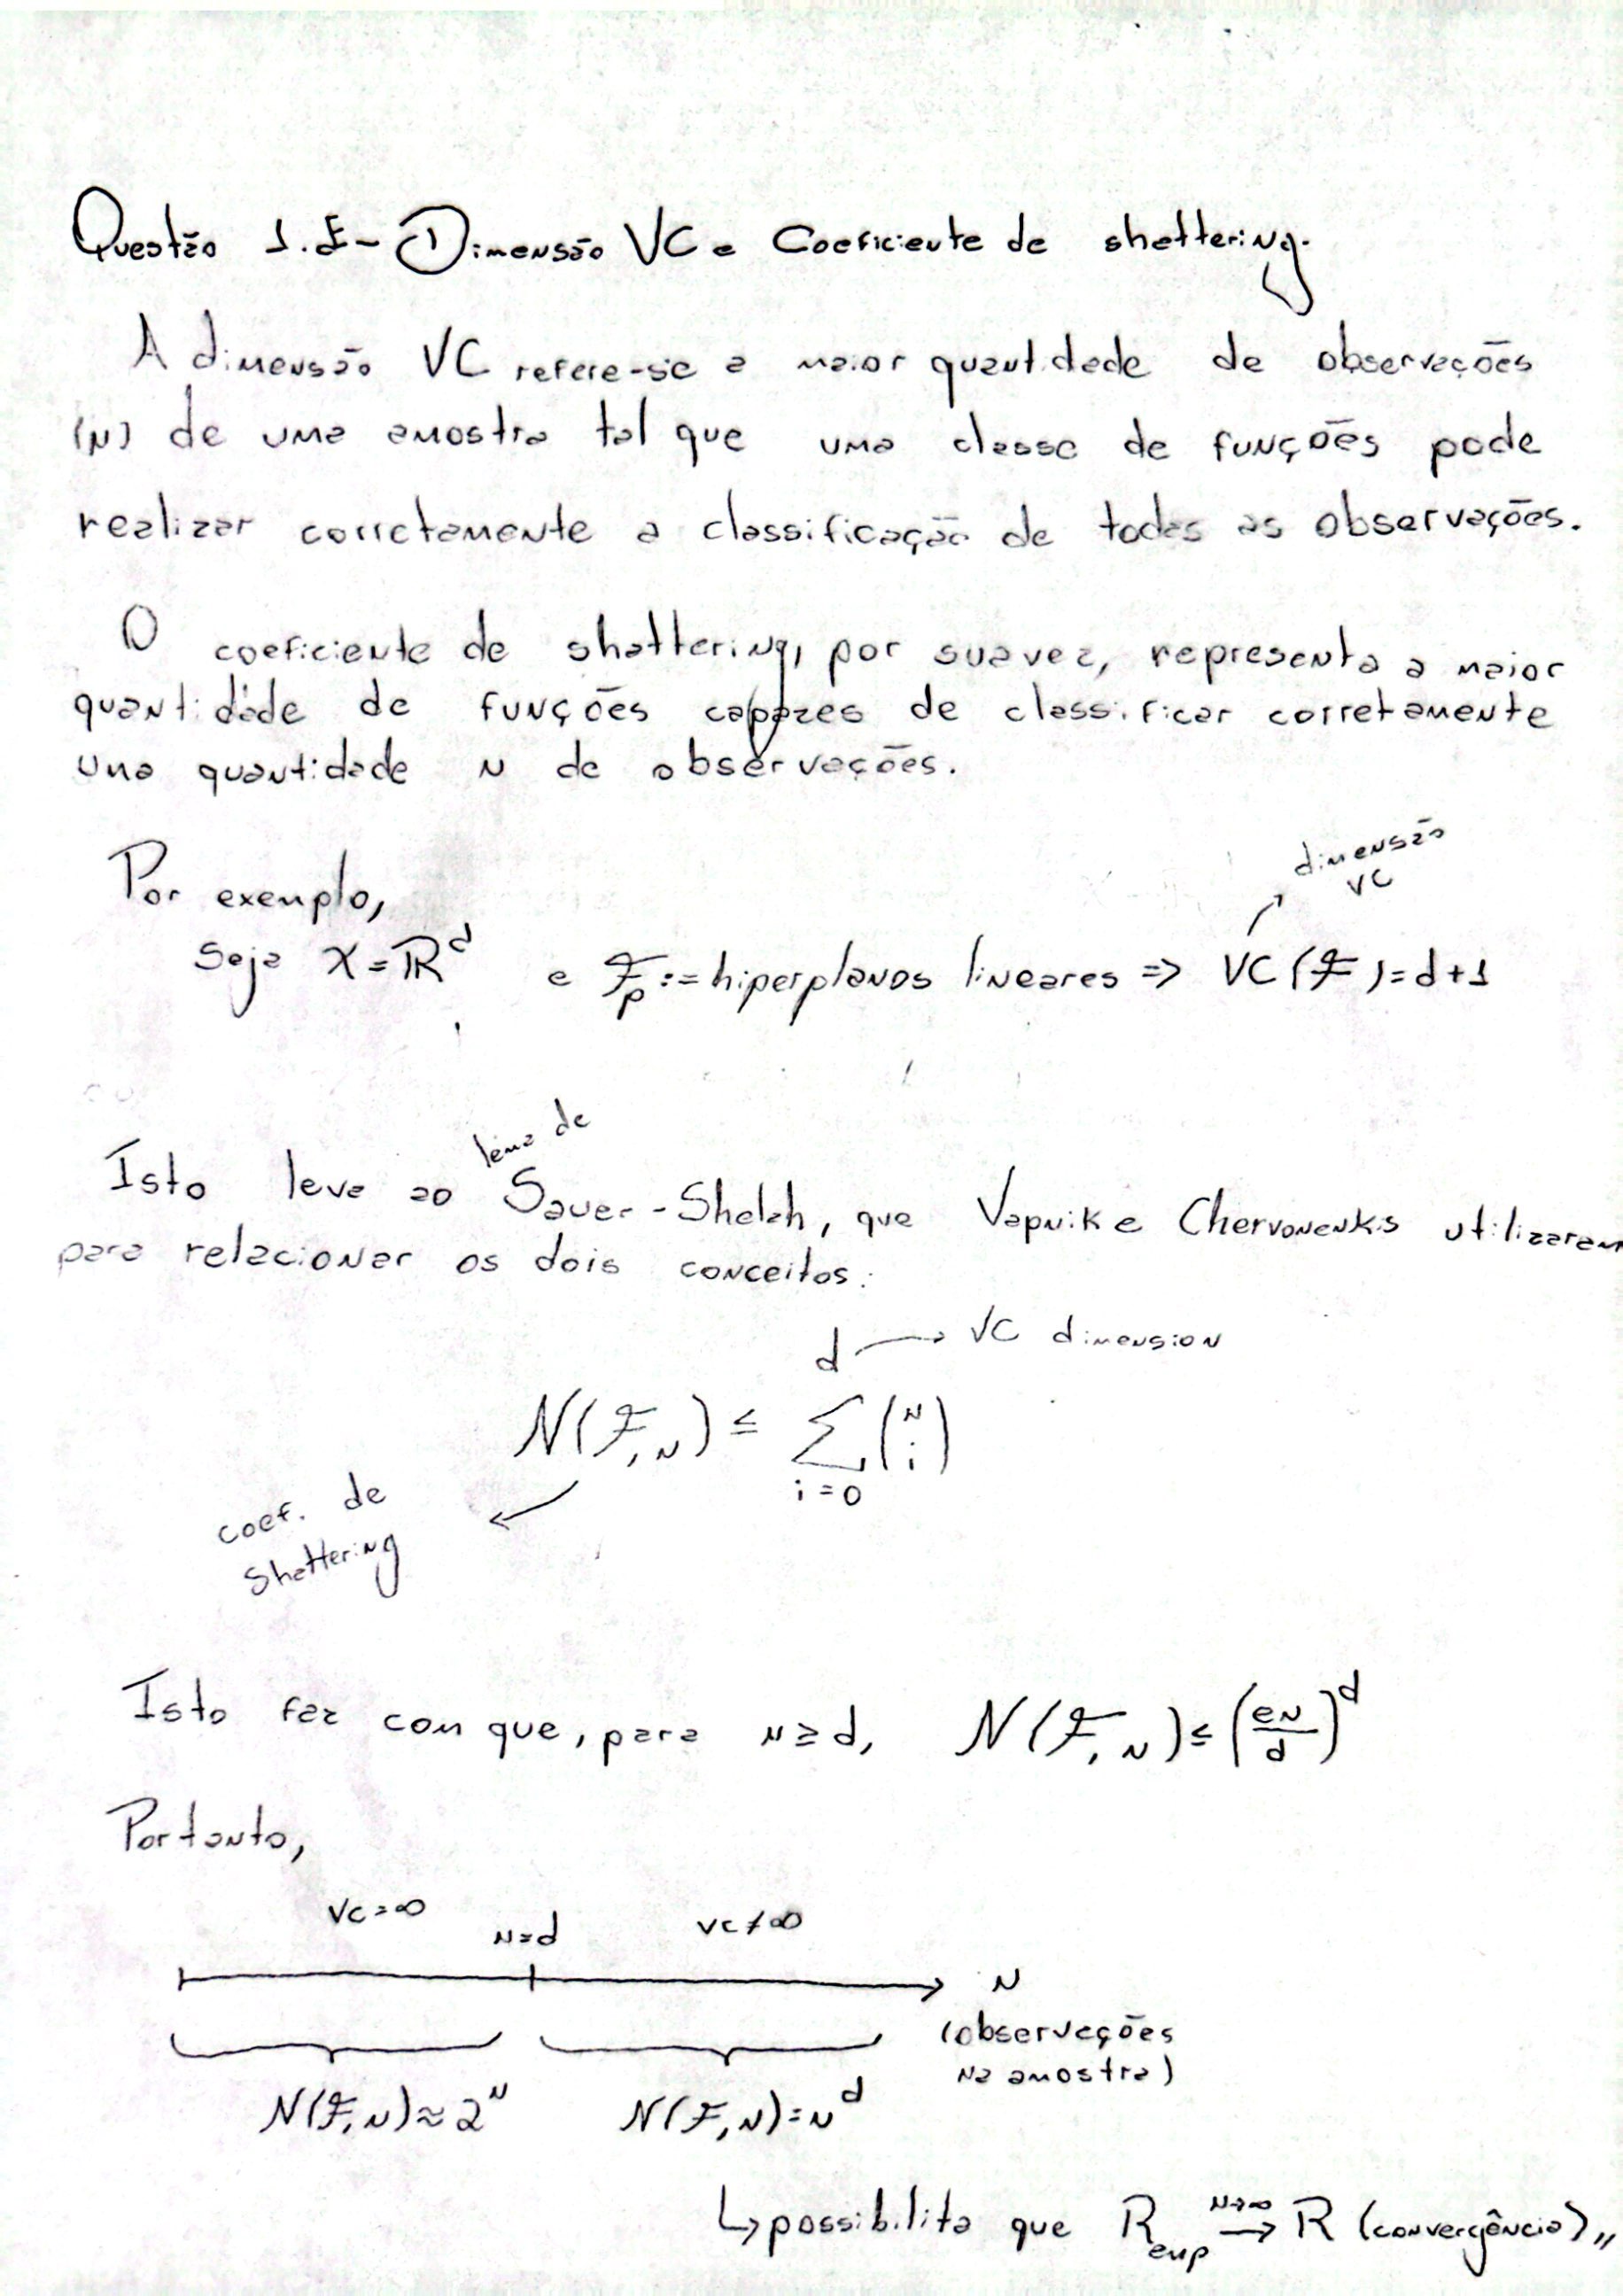 Questão 1.E - Dimensão VC e Coeficiente de shattering.
A dimensão VC refere-se a maior quantidade de observações
(n) de uma amostra tal que uma classe de funções pode
realizar corretamente a classificação de todas as observações.
O coeficiente de shattering, por sua vez, representa a maior
quantidade de funções capazes de classificar corretamente
uma quantidade n de observações.
Por exemplo,
dimensão
VC
Seja X = ℝ^d e 𝓕_p := hiperplanos lineares => VC(𝓕) = d+1
lema de
Isto leva ao Sauer-Shelah, que Vapnik e Chervonenkis utilizaram
para relacionar os dois conceitos:
d → VC dimension
N(𝓕, n) ≤ ∑ (n i)
i=0
coef. de
Shattering
Isto faz com que, para n ≥ d, N(𝓕, n) ≤ (en/d)^d
Portanto,
VC=∞ n=d VC≠∞
n
(observações
na amostra)
N(𝓕, n) ≈ 2^n N(𝓕, n) = n^d
↳ possibilita que R_emp →^(n→∞) R (convergência),,